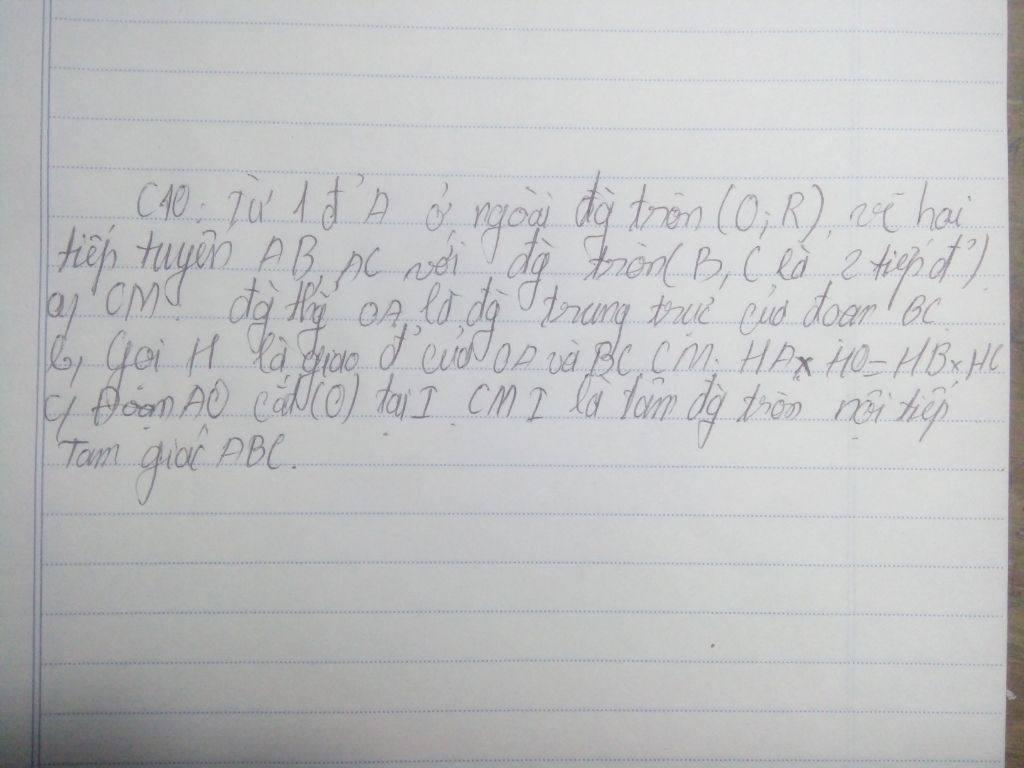 C10: Từ 1 đ' A ở ngoài đg tròn (O; R), vẽ hai
tiếp tuyến AB, AC với đg tròn (B, C là 2 tiếp đ')
a, CM: đg thg OA là đg trung trực của đoạn BC.
b, Gọi H là giao đ' của OA và BC. CM: HA x HO = HB x HC
c, Đoạn AO cắt (O) tại I CM I là tâm đg tròn nội tiếp
Tam giác ABC.